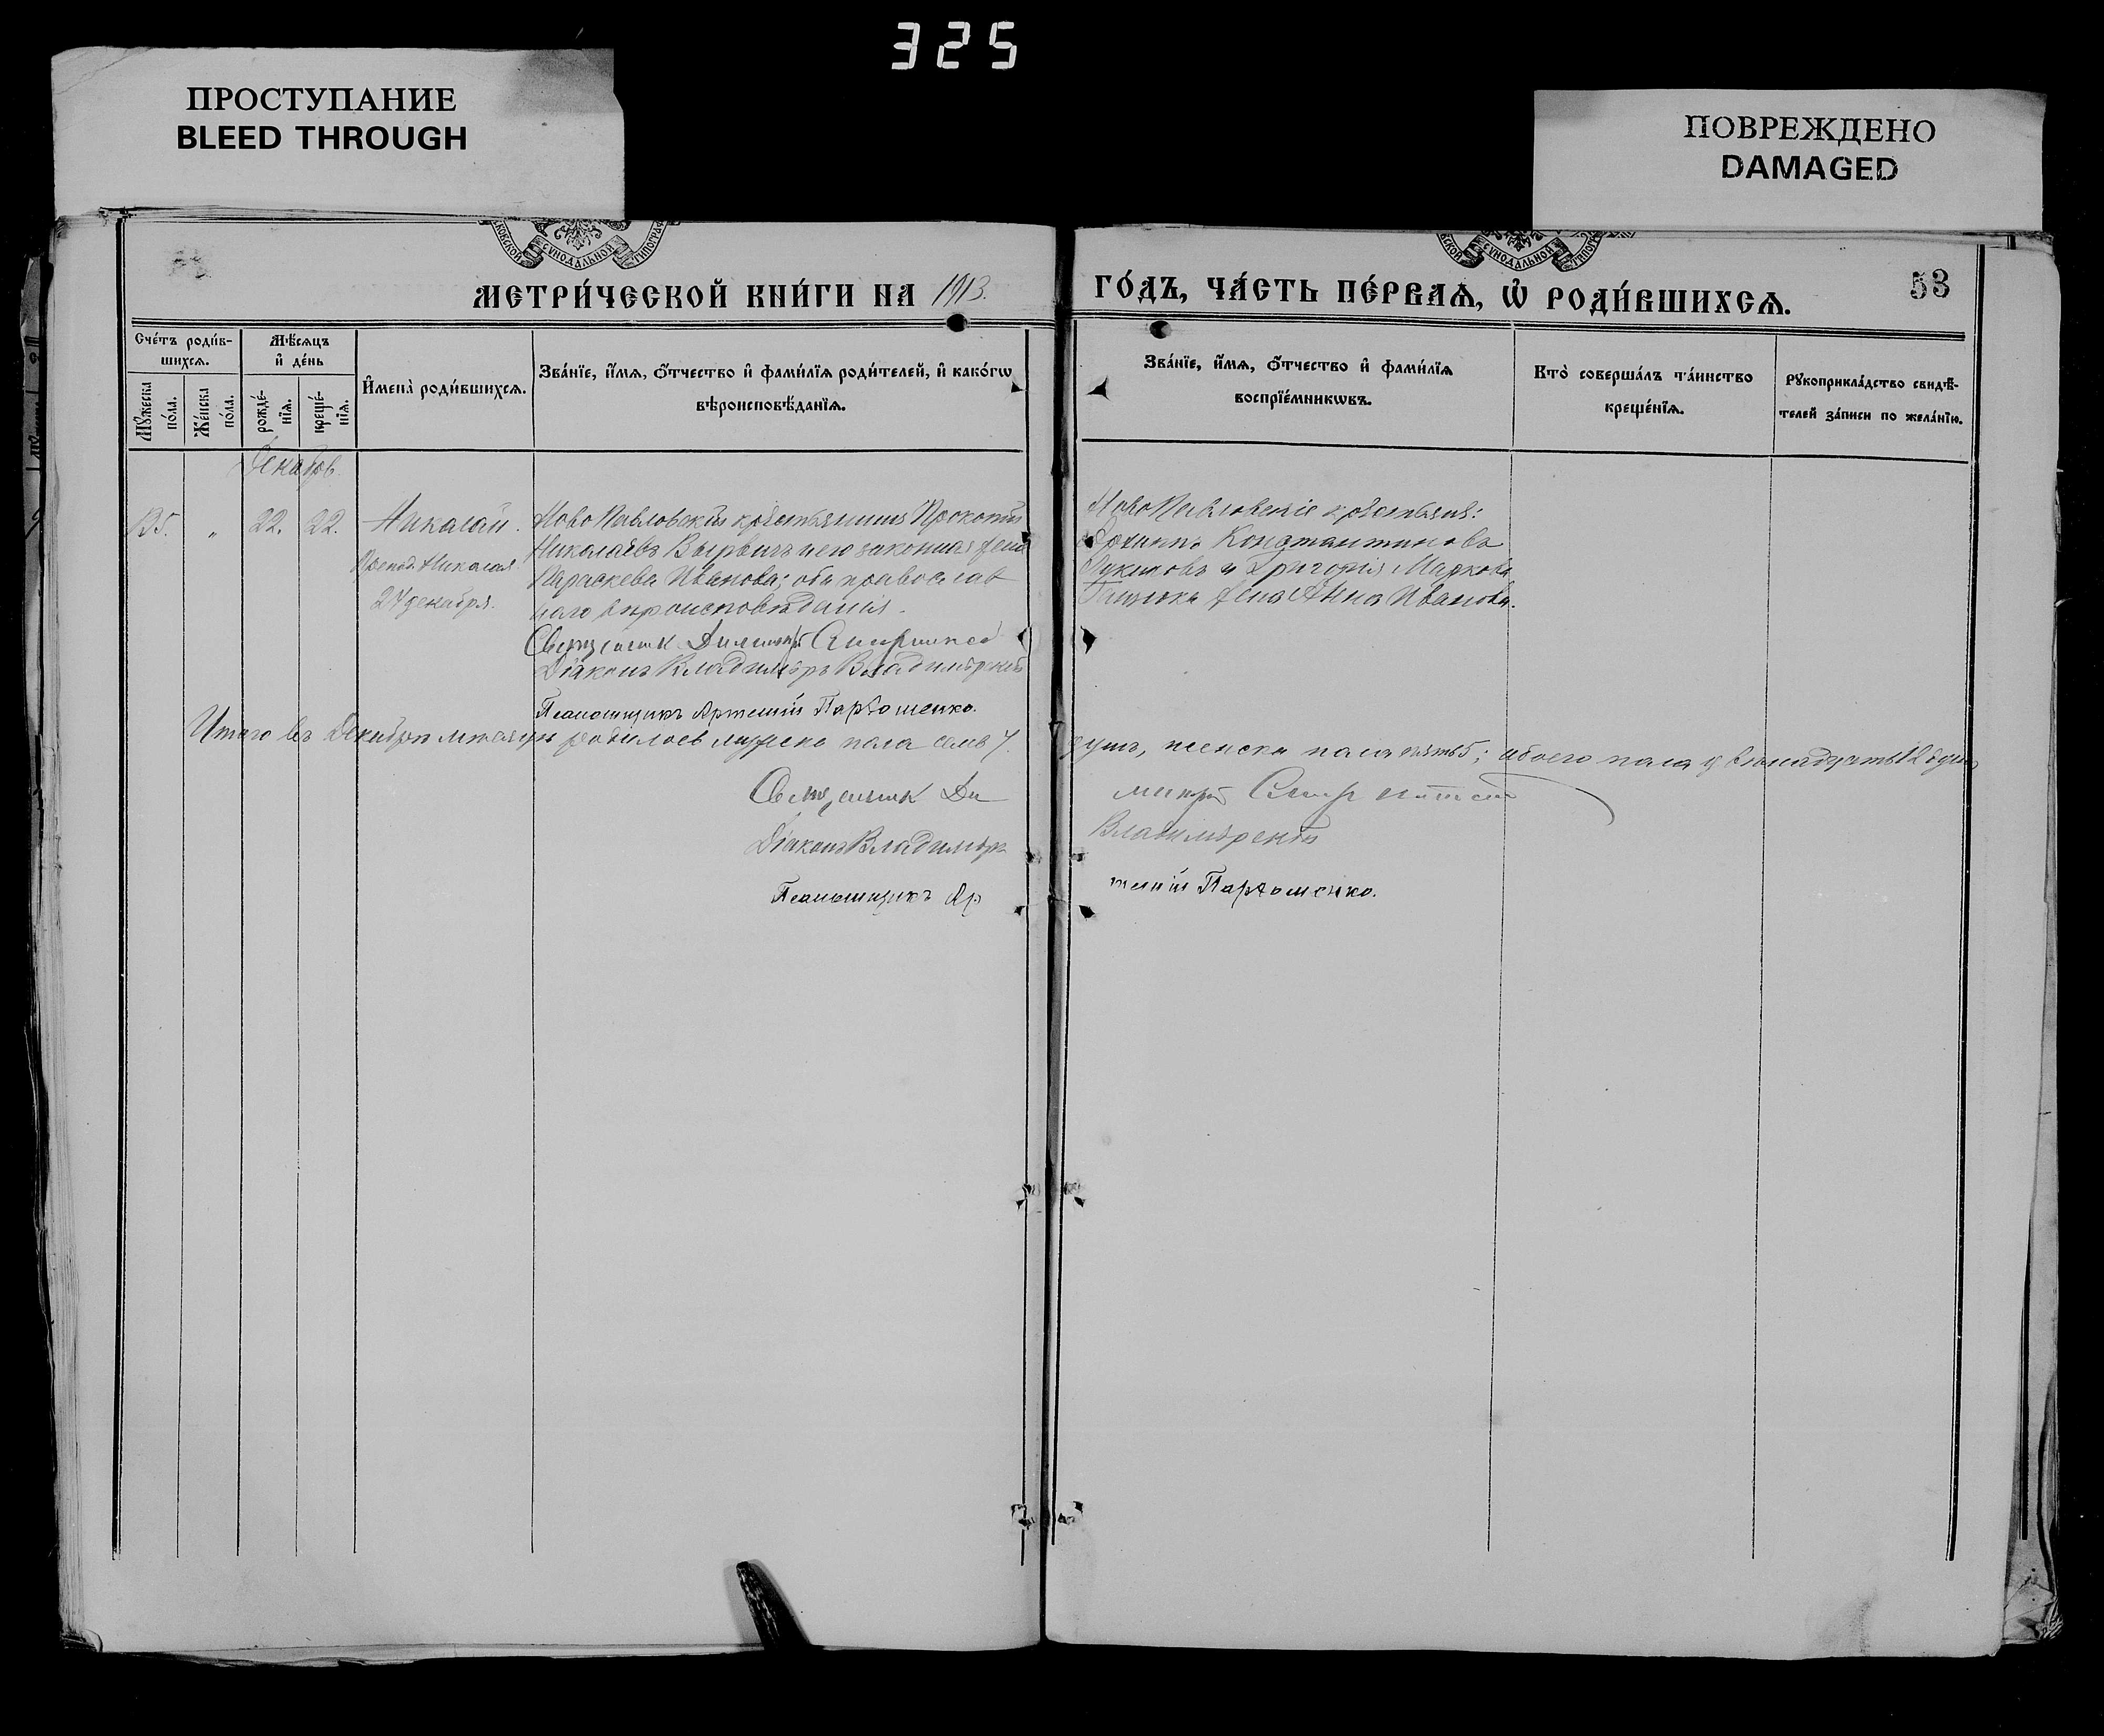 325
ПРОСТУПАНИЕ
BLEED THROUGH
ПОВРЕЖДЕНО
DAMAGED
СУНОДАЛЬНОЙ
СУНОДАЛЬНОЙ
МЕТРИ́ЧЕСКОЙ КНИ́ГИ НА 1913.
ГО́ДЪ, ЧА́СТЬ ПЕ́РВАѦ, Ѡ҆ РОДИ́ВШИХСѦ.
53
Сче́тъ роди́в-
шихсѧ.
Мꙋ́жеска
по́ла.
Же́нска
по́ла.
Мѣ́сѧцъ
и҆ де́нь
рожде́-
нїѧ.
креще́-
нїѧ.
И҆мена̀ роди́вшихсѧ.
Зва́нїе, и҆́мѧ, ѻ҆́тчество и҆ фами́лїѧ роди́телей, и҆ како́гѡ
вѣроисповѣ́данїѧ.
Зва́нїе, и҆́мѧ, ѻ҆́тчество и҆ фами́лїѧ
воспрїе́мникѡвъ.
Кто̀ соверша́лъ та́инство
креще́нїѧ.
Рꙋкоприкла́дство свидѣ́-
телей за́писи по жела́нїю.
Декабрь.
135. „ 22. 22. Николай.
24 декабря.
НовоПавловскій крестьянинъ Прокопій
Николаевъ Вырвичъ и его законная жена
Параскева Иванова; оба православ
наго вѣроисповѣданія.
Священник Димитрій
Діаконъ Владиміръ Владимірскій
Псаломщикъ Артемій Пархоменко.
НовоПавловскіе крестьяне:
Константиновъ
и Григорія Маркова
жена Анна Иванова.
Итого въ Декабрѣ мѣсяцѣ родилось мужеска пола семь 7
душъ, женска пола пять 5; обоего пола двѣнадцать 12 душъ
Священник Ди
митрій
Діаконъ Владиміръ
Владимірскій
Псаломщикъ Ар
темій Пархоменко.